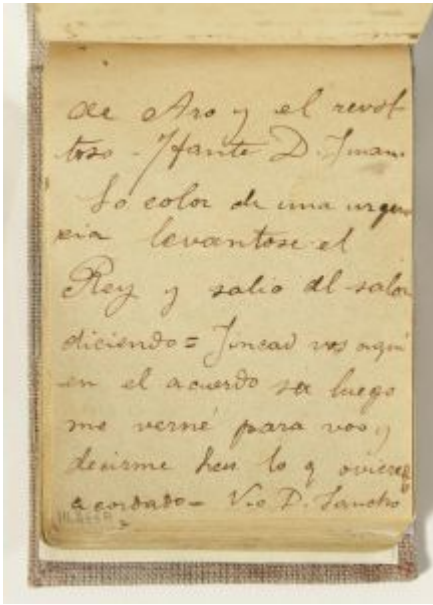 de Aro y el revol
toso Ifante D. Juan
So color de una urgen
cia levantose el
Rey y salio del salon
diciendo = Fincad vos aqui
en el acuerdo ca luego
me verné para vos y
decirme hen lo q ovieren
acordado = Vio D. Sancho